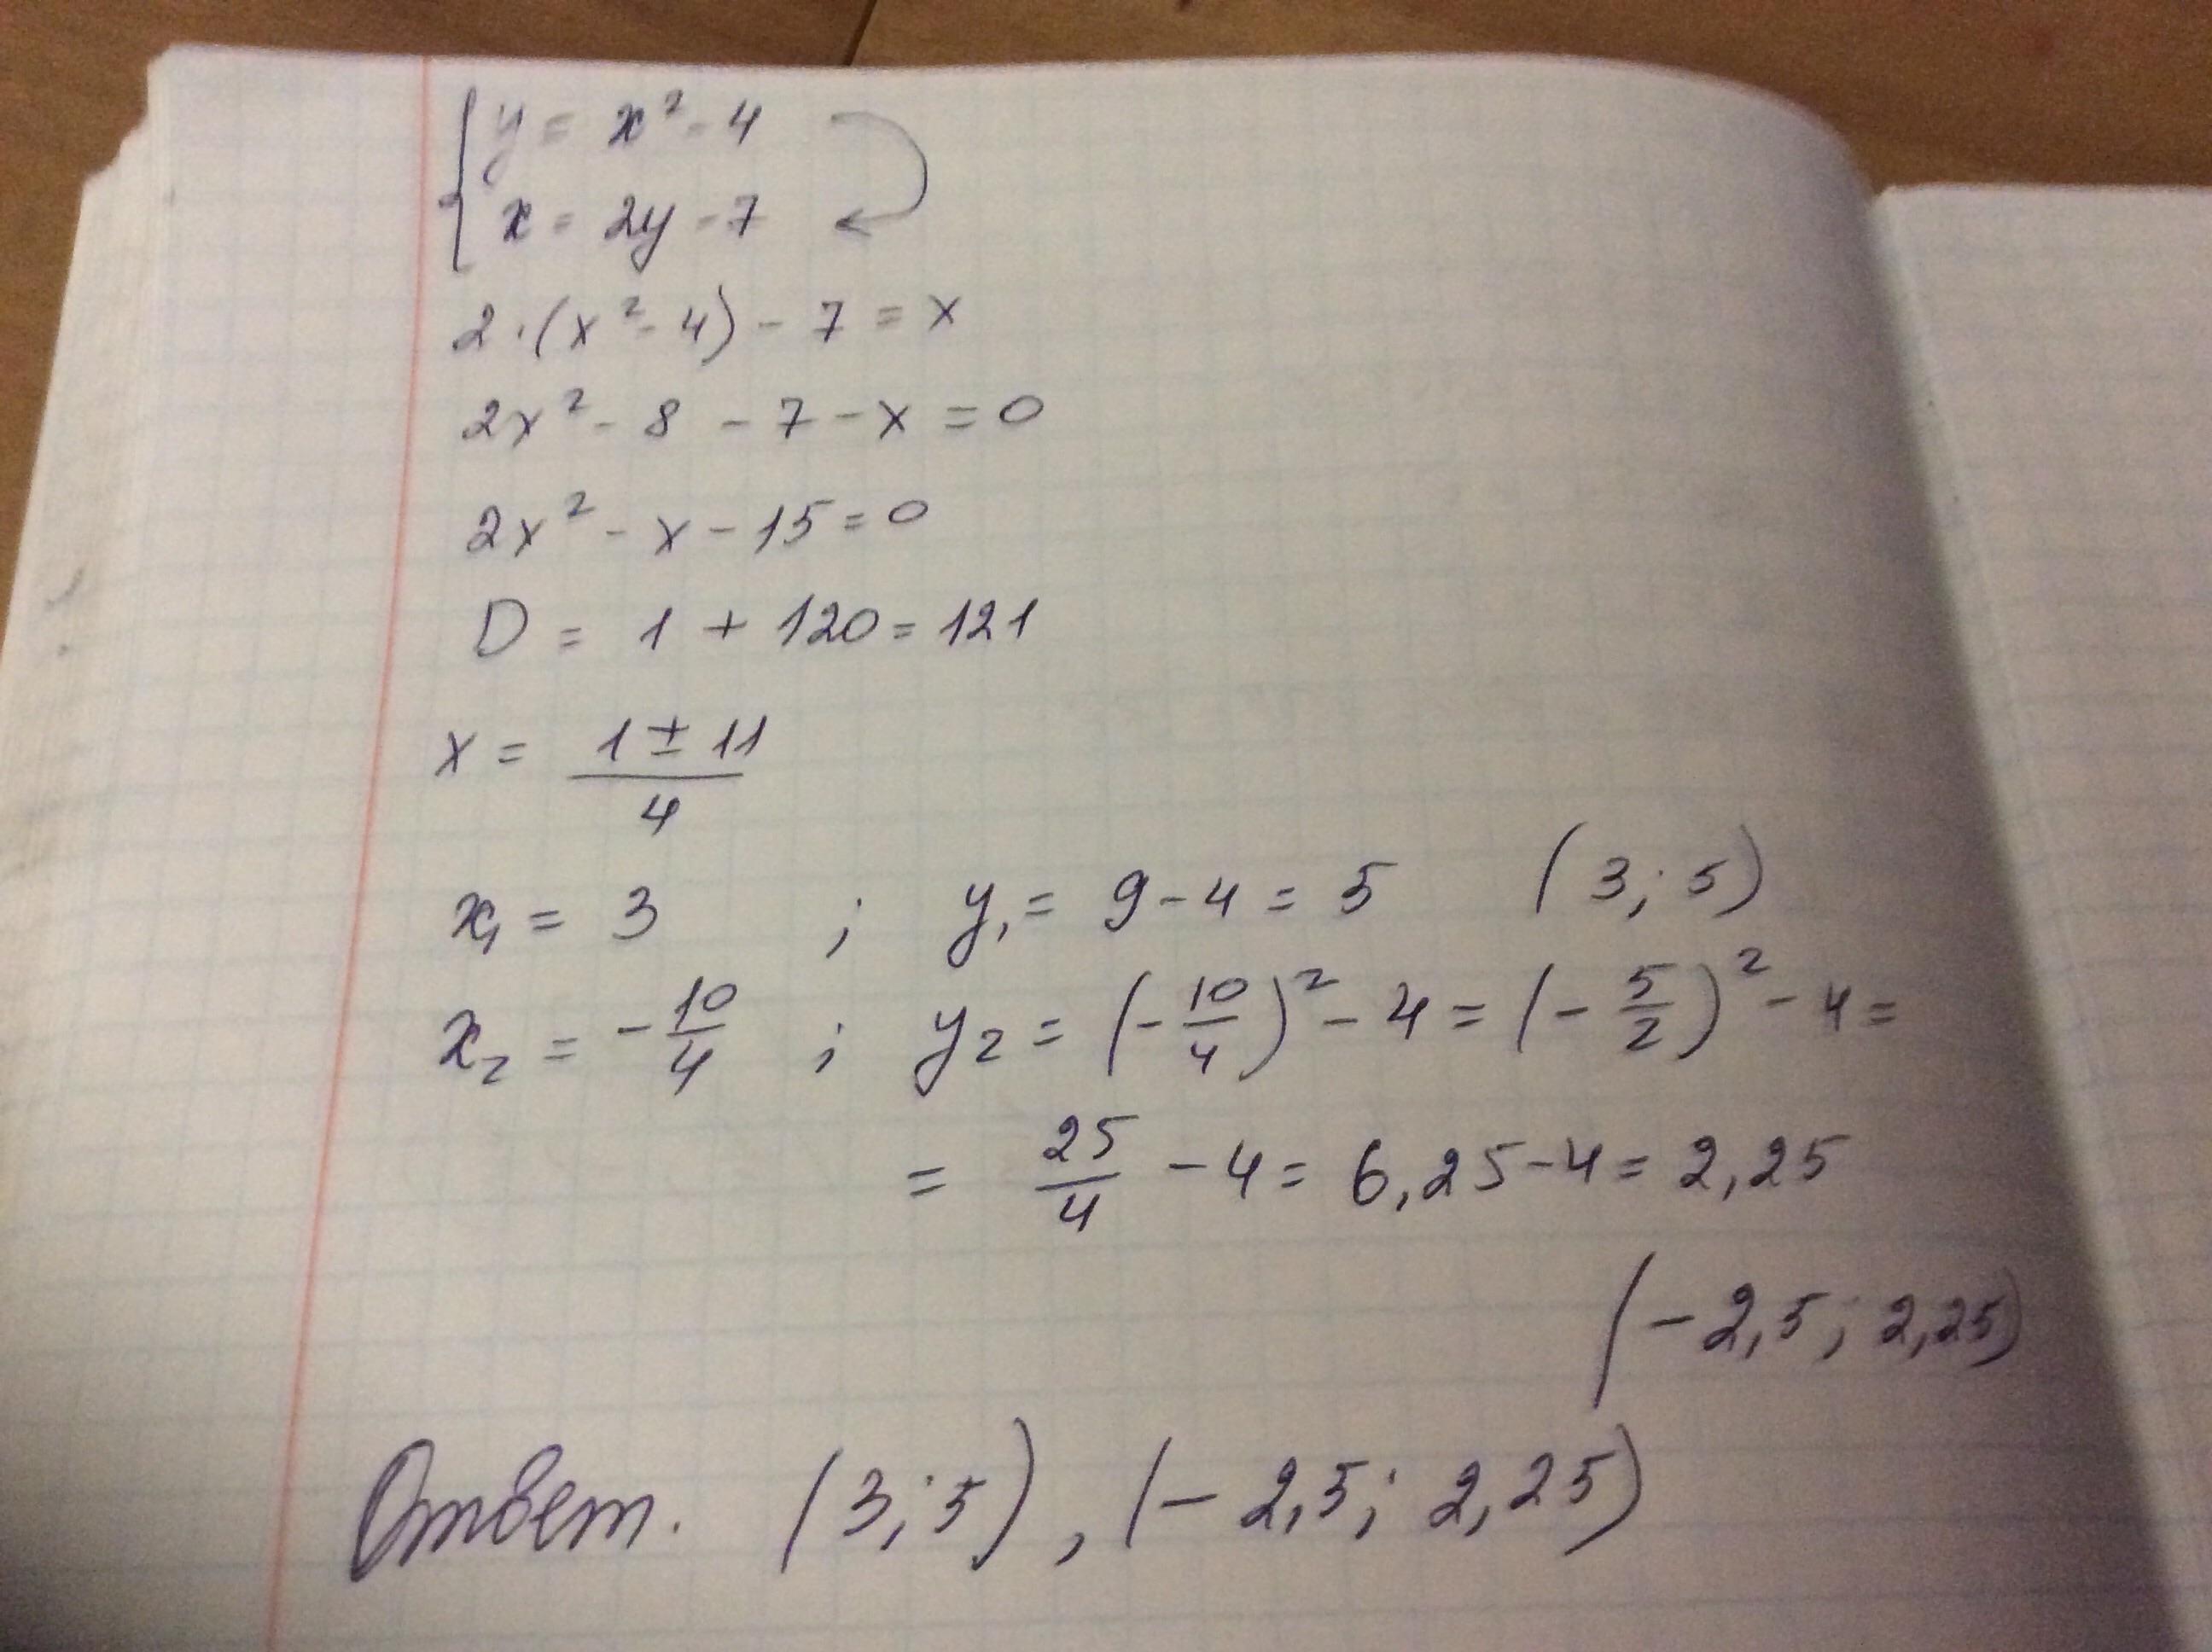 y = x² - 4
x = 2y - 7
2·(x² - 4) - 7 = x
2x² - 8 - 7 - x = 0
2x² - x - 15 = 0
D = 1 + 120 = 121
x = (1 ± 11)/4
x₁ = 3 ; y₁ = 9 - 4 = 5 (3; 5)
x₂ = - 10/4 ; y₂ = (- 10/4)² - 4 = (- 5/2)² - 4 =
= 25/4 - 4 = 6,25 - 4 = 2,25
(- 2,5; 2,25)
Ответ. (3; 5), (- 2,5; 2,25)